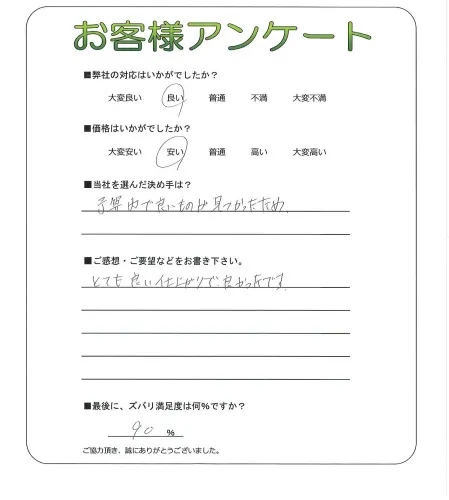 お客様アンケート
■弊社の対応はいかがでしたか？
大変良い 良い 普通 不満 大変不満
■価格はいかがでしたか？
大変安い 安い 普通 高い 大変高い
■当社を選んだ決め手は？
予算内で良いものが見つかったため.
■ご感想・ご要望などをお書き下さい。
とても良い仕上がりで良かったです.
■最後に、ズバリ満足度は何％ですか？
90 ％
ご協力頂き、誠にありがとうございました。